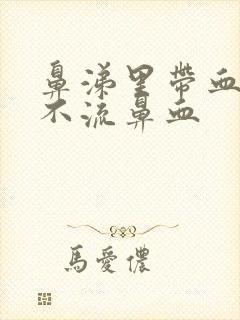 鼻涕里帶血
不流鼻血
馬愛儂